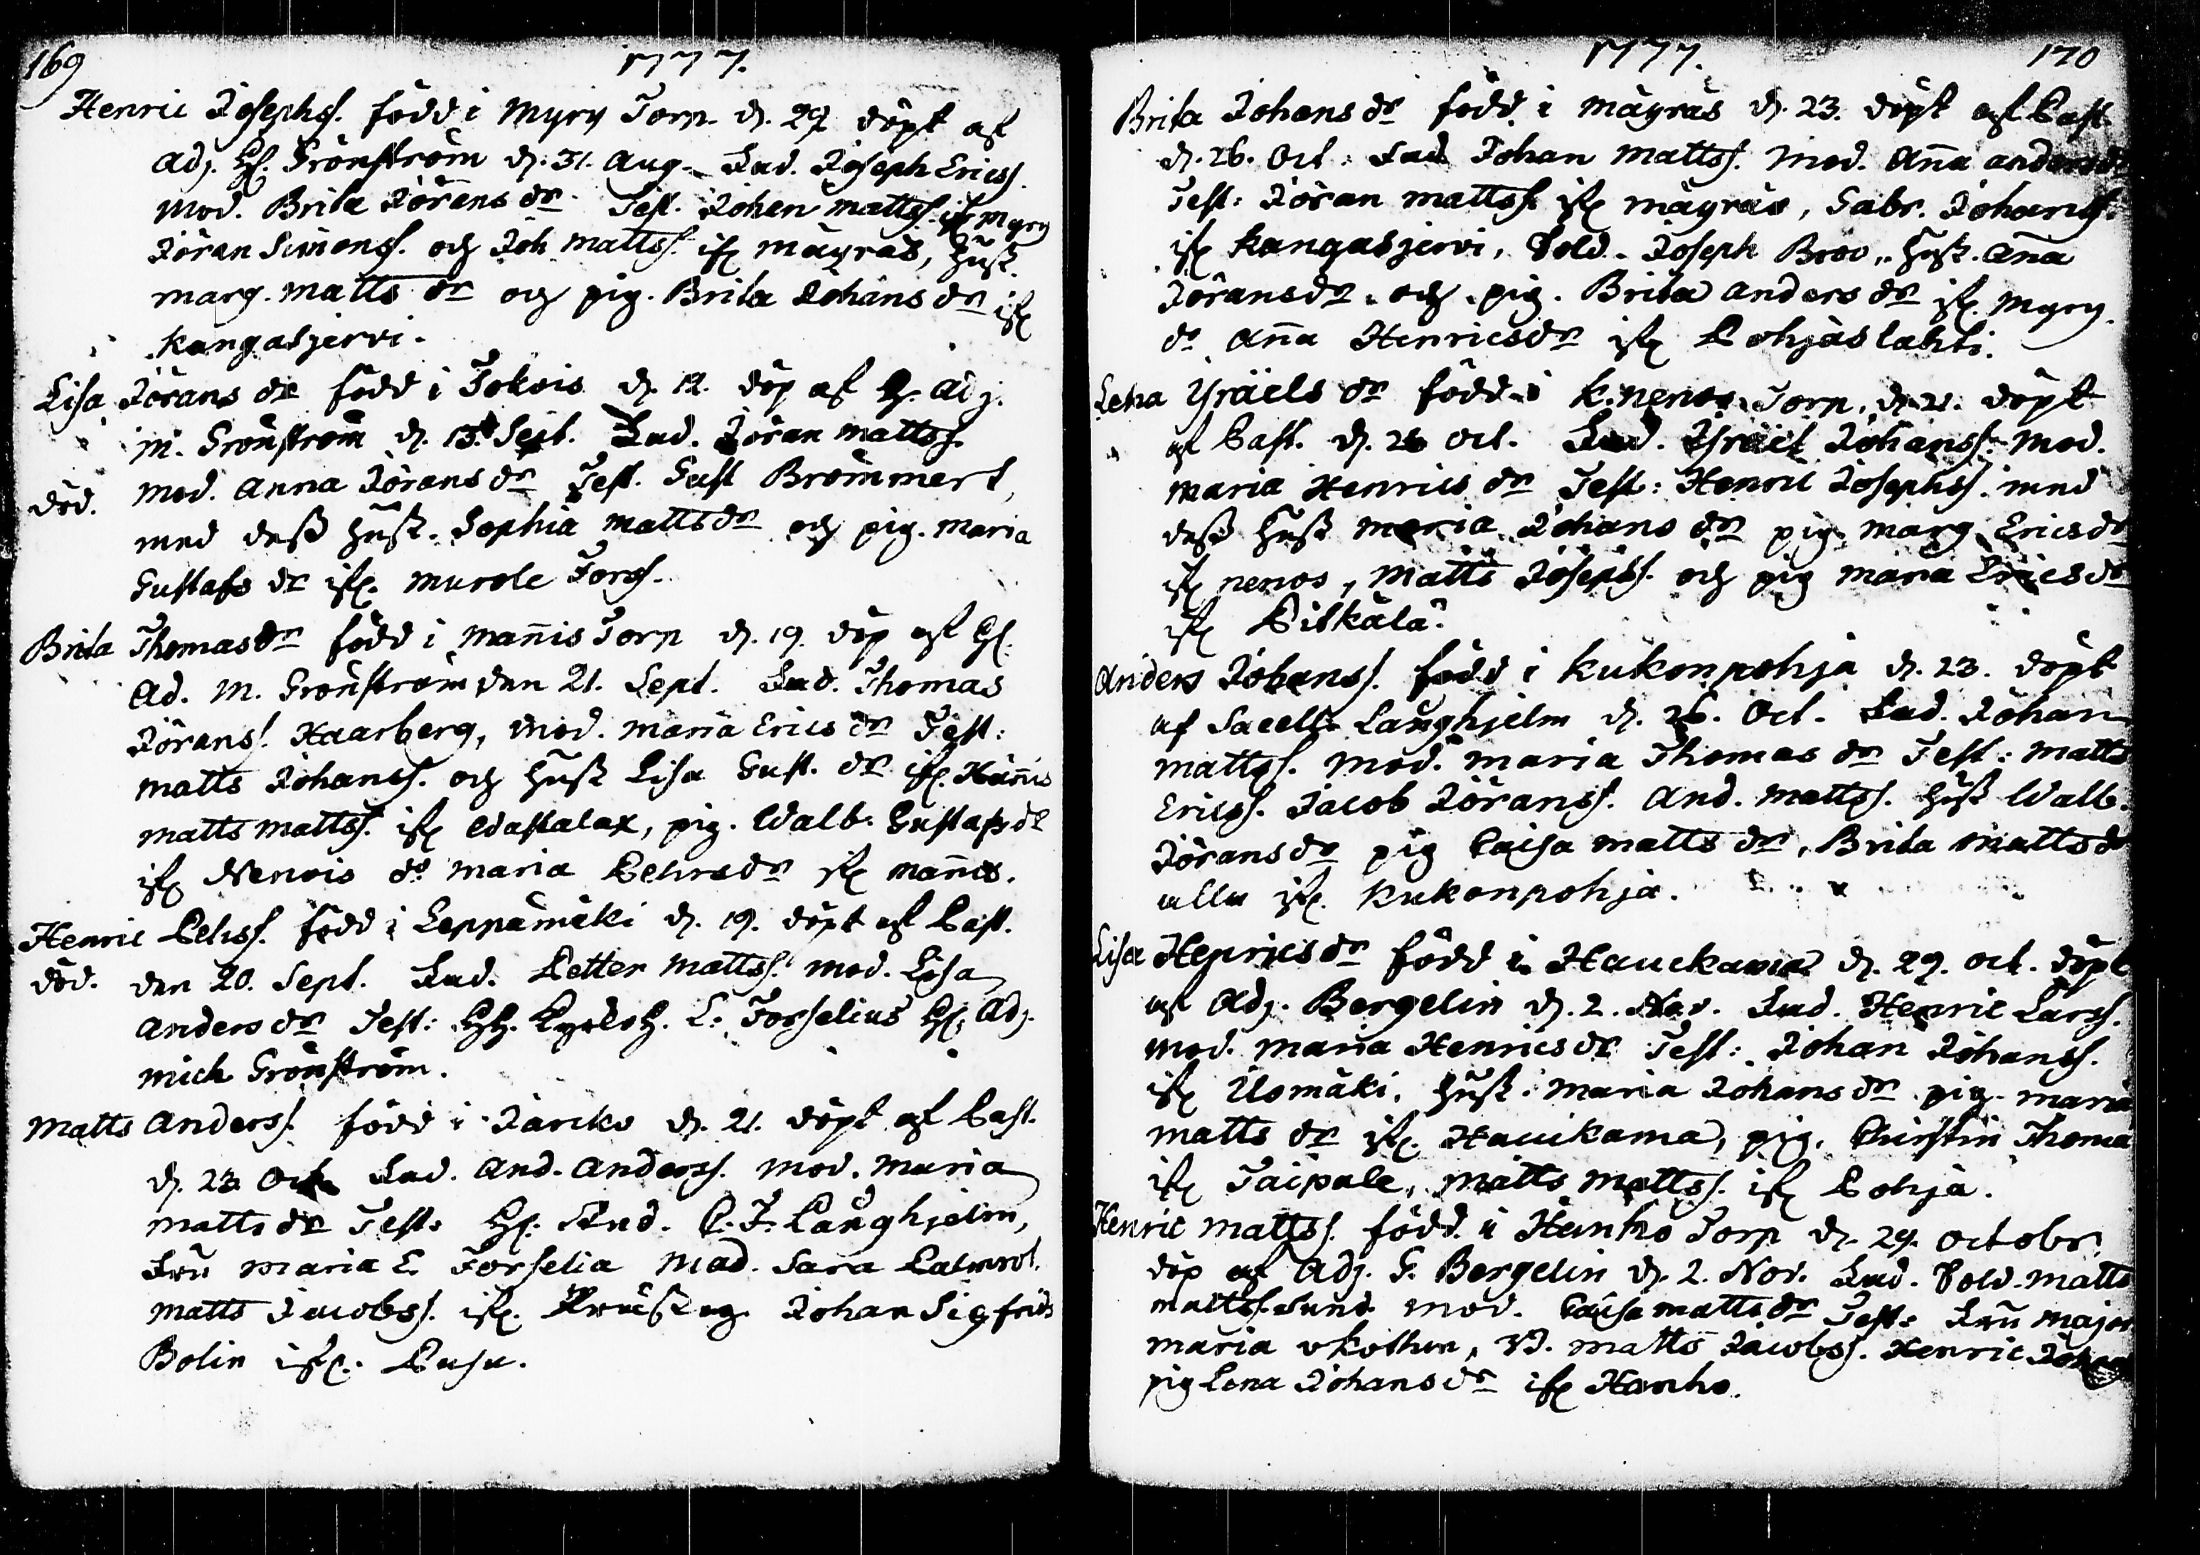 169 1777.
Henric Josephs. född i Myry Torp d. 29 döpt af
Adj. H. Grönström d. 31. Aug. Fad. Joseph Erics.
Mod. Brita Jörans dr Test. Johan Matts. ifr. Myry
Jöran Simons. och Joh Matts. ifr. Mägräs, Hust.
Marg. Matts dr och pig. Brita Johans dr ifr.
Kangasjervi.
Lisa Jörans dr född i Tokois d. 12. döp af H. Adj.
M. Grönström d. 13. Sept. Fad. Jöran Matts.
död. Mod. Anna Jörans dr Test. Gust Brommert,
med dess Hust. Sophia Matts dr och pig. Maria
Gustafs dr ifr. Murole Fors.
Brita Thomas dr född i Mannis Torp d. 19. döp af H.
Ad. M. Grönström den 21. Sept. Fad. Thomas
Jörans. Haarberg, Mod. Maria Erics dr Test:
Matts Johans. och Hust Lisa Gust. dr ifr. Hännis
Matts Matts. ifr. Wastalax, pig. Walb. Gustafs dr
ifr. Nenois do Maria Pehrs dr ifr. Mannis.
Henric Pehrs. född i Leppämäki d. 19. döpt af Past.
död. den 20. Sept. Fad. Petter Matts. Mod. Lisa
Anders dr Test: HH. Kyrkoh. E. Forselius H. Adj.
Mich Grönström.
Matts Anders. född i Jäecks d. 21. döpt af Past.
d. 23 Oct. Fad. And. Anders. Mod. Maria
Matts dr Test: H. Stud. C. F. Laughjelm,
Fru Maria E. Forselia Mad. Sara Palmrot.
Matts Jacobs. ifr. och Johan Sigfrids
Bolin ifr. Pusu.
1777. 170
Brita Johans dr född i Mägräs d. 23. döpt af Past
d. 26. Oct. Fad Johan Matts. Mod. Anna Anders dr
Test: Jöran Matts. ifr. Mägräs, Gabr. Johans.
ifr. Kangasjervi, Sold. Joseph Broo, Hust. Anna
Jörans dr och pig. Brita Anders dr ifr. Myry.
do Anna Henrics dr ifr. Pohjaslahti.
Lena Ysraels dr född i K. nenos Torp, d. 21. döpt
af Past. d. 26 Oct. Fad. Ysraël Johans. Mod.
Maria Henrics dr Test: Henric Josephs. med
dess Hust Maria Johans dr pig. Marg. Erics dr
ifr. nenos, Matts Josephs. och pig Maria Erics dr
ifr. Pitkälä.
Anders Johans. född i Kukonpohja d. 23. döpt
af Sacell. Laughjelm d. 26. Oct. Fad. Johan
Matts. Mod. Maria Thomas dr Test: Matts
Erics. Jacob Jörans. And. Matts. Hust Walb.
Jörans dr pig Caisa Matts dr, Brita Matts dr
alla ifr. Kukonpohja.
Lisa Henrics dr född i Hauckama d. 29. Oct. döpt
af Adj. Bergelin d. 2. Nov. Fad. Henric Lars.
Mod. Maria Henrics dr Test: Johan Johans.
ifr. Usmäki, Hust. Maria Johans dr pig. Maria
Matts dr ifr. Hauikama, pig. Christin Thoma
ifr. Taipale, Matts Matts. ifr. Pohja.
Henric Matts. född i Hanho Torp d. 29. Octobr.
döp af Adj. G. Bergelin d. 2. Nov. Fad. Sold. Matts
Matts. Sund Mod. Caisa Matts dr Test: Fru Major
Maria v Kothen, Matts Jacobs. Henric
pig Lena Johans dr ifr. Hanho.